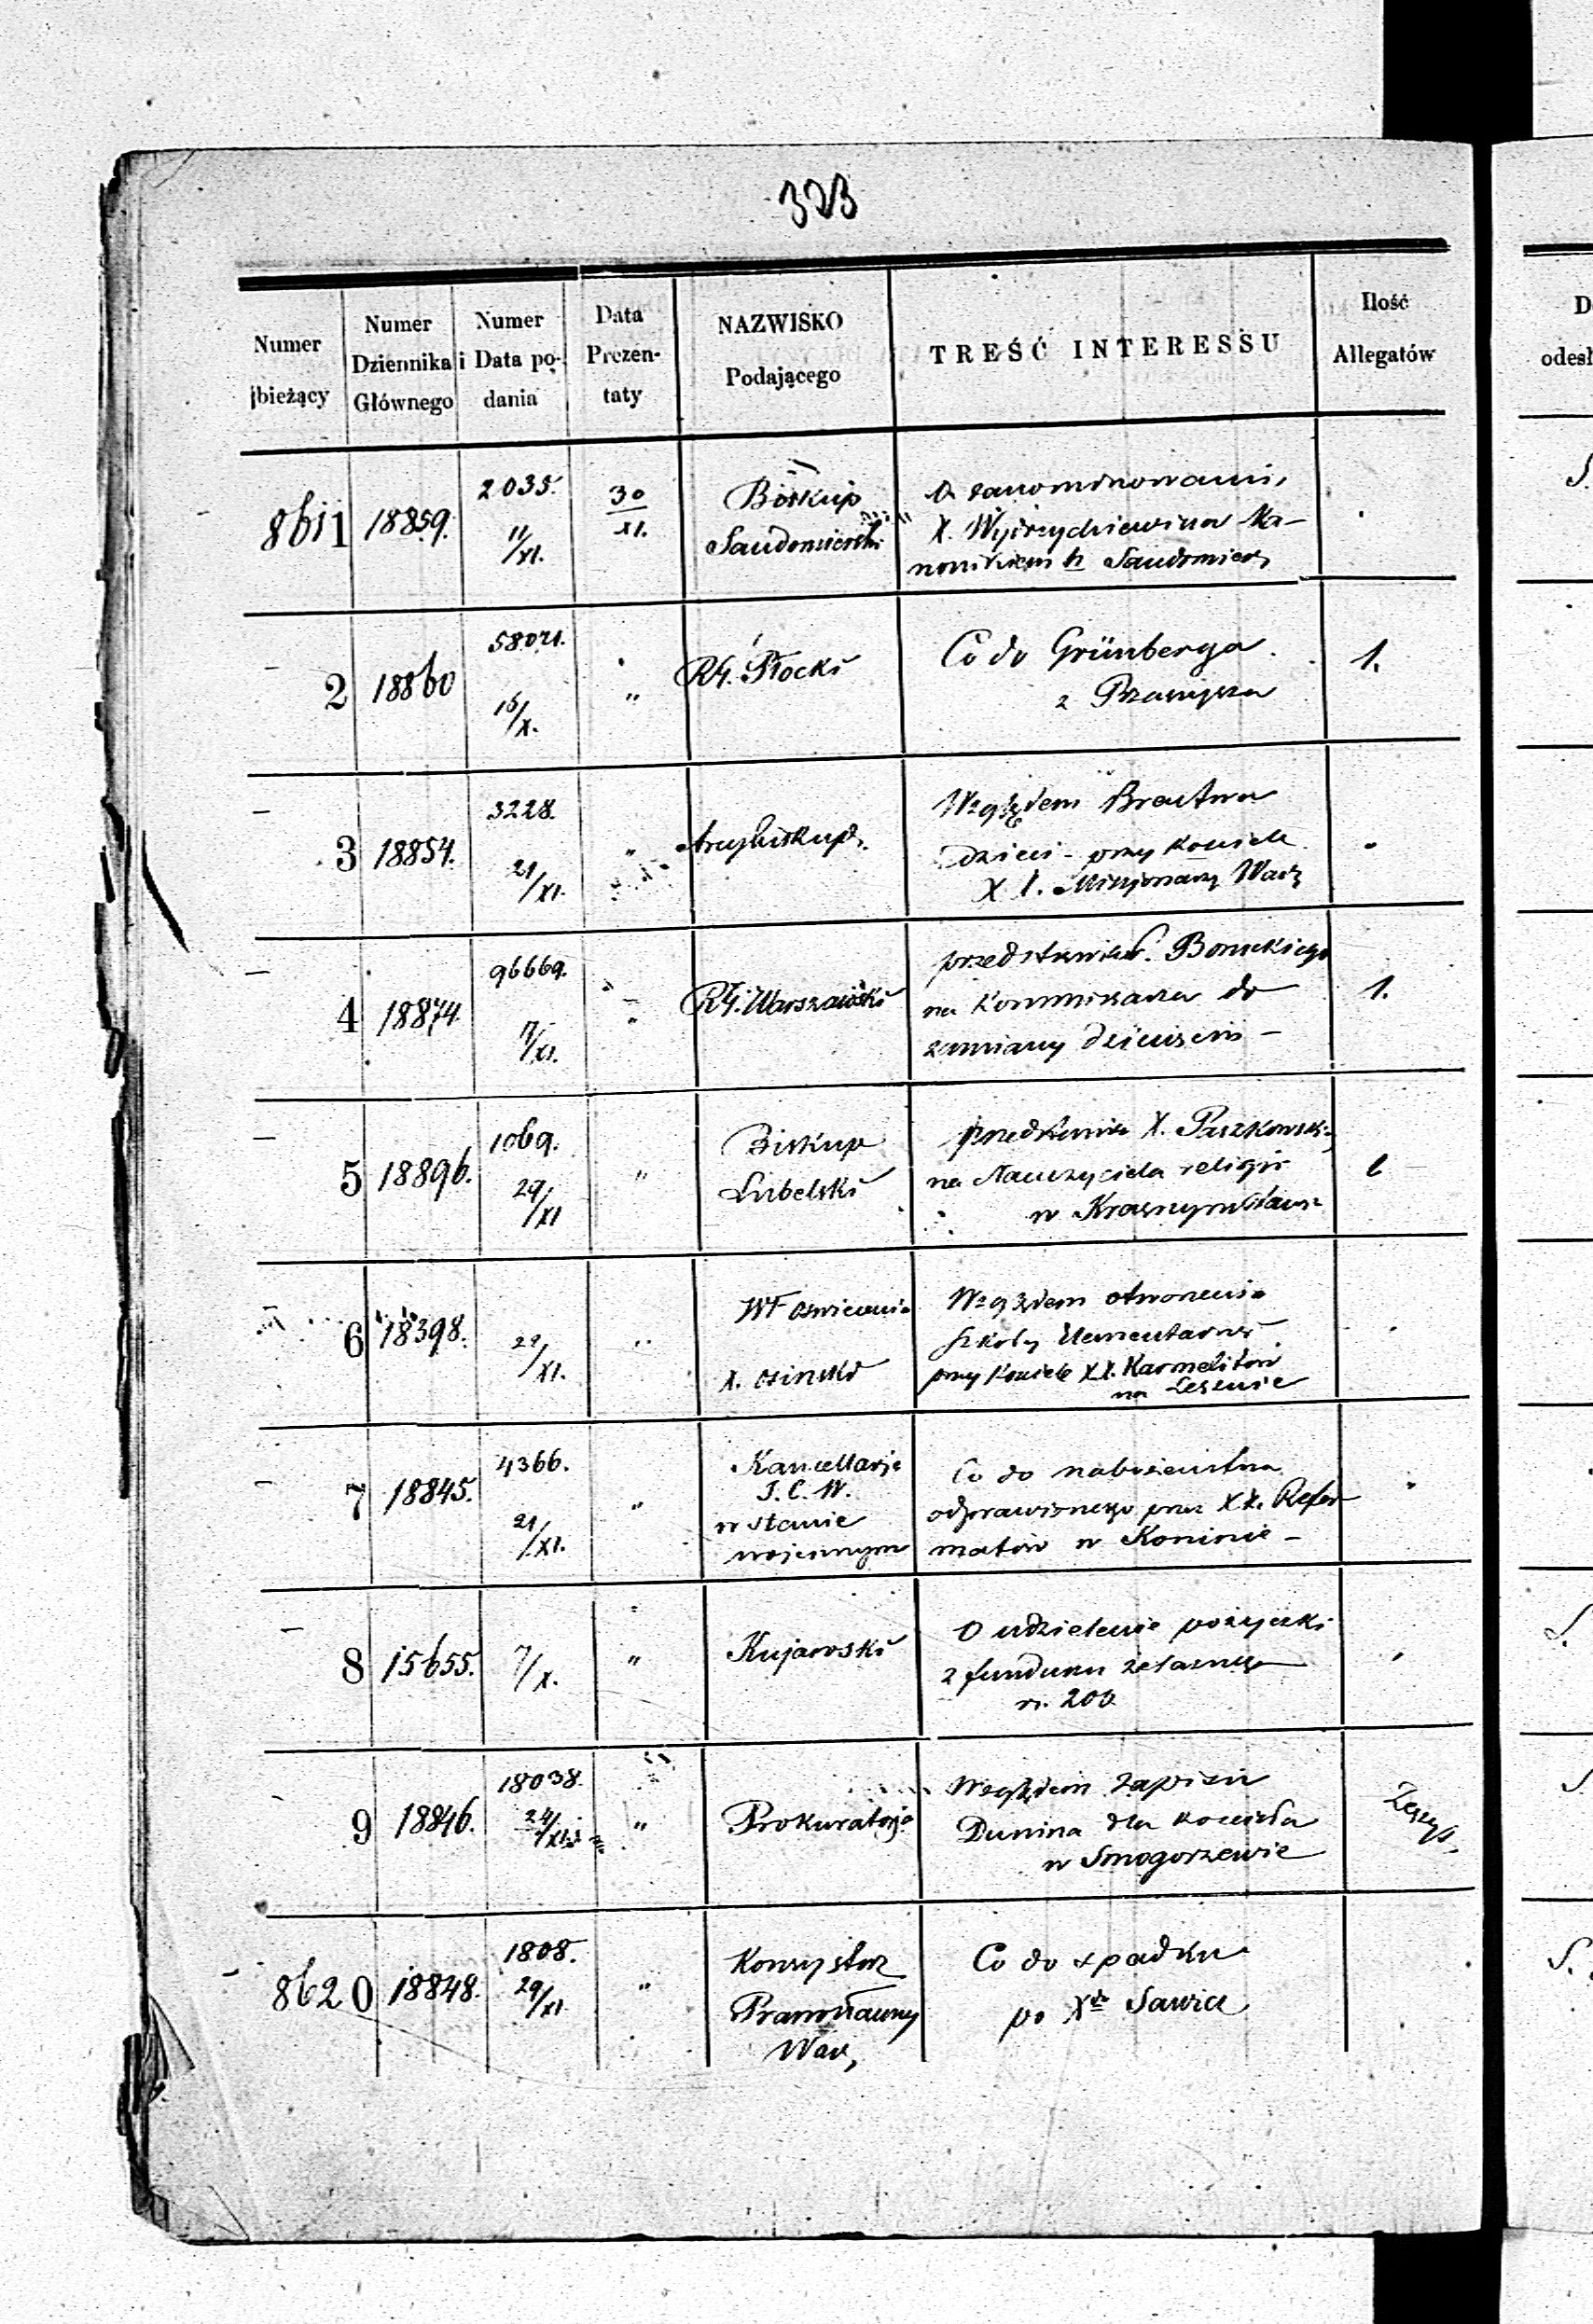 323
Numer bieżący
Numer Dziennika Głównego
Numer i Data podania
Data Prezentaty
NAZWISKO Podającego
TREŚĆ INTERESSU
Ilość Allegatów
8611 18859. 2035. 11/XI. 30/XI.
Biskup
Sandomierski
X. Kanonikiem h. Sandomier,
2 18860 58021. 16/X. "
RG. Płocki
Co do Grünberga
z Przasnysza
1.
3 18854. 3228. 21/XI. "
Arcybiskup.
Względem Bractwa
dzieci - przy kościele
X X. Misjonarzy Warsz
4 18874. 96669. 17/XI. "
RG. Warszawski
przedstawia
na Kommissarza do
zamiany dziesięcin -
1.
5 18896. 1069. 29/XI "
Biskup
Lubelski
przedstawia X. Paszkowski
na Nauczyciela religii
w Krasnymstawie
1
6 18398. 29/XI. "
WF Oświecenia
X. Osiński
Względem otworzenia
szkoły elementarnej
przy kościele XX. Karmelitów
na Lesznie
7 18845. 4366. 21/XI. "
Kancellarja
J. C. W.
w stanie
wojennym
Co do nabożeństwa
odprawionego przez XX. Refor
matów w Koninie -
8 15655. 7/X. "
Kujawski
O udzielenie pożyczki
z funduszu żelaznego
rs. 200
9 18846. 18038. 24/XI. "
Prokuratorja
Względem zapisu
Dunina dla kościoła
w Smogorzewie
Zeszyt.
8620 18848. 1808. 29/XI. "
Konsystorz
Prawosławny
War,
Co do spadku
po Xdz Sawicz
D
odesł
S.
S.
S.
S.